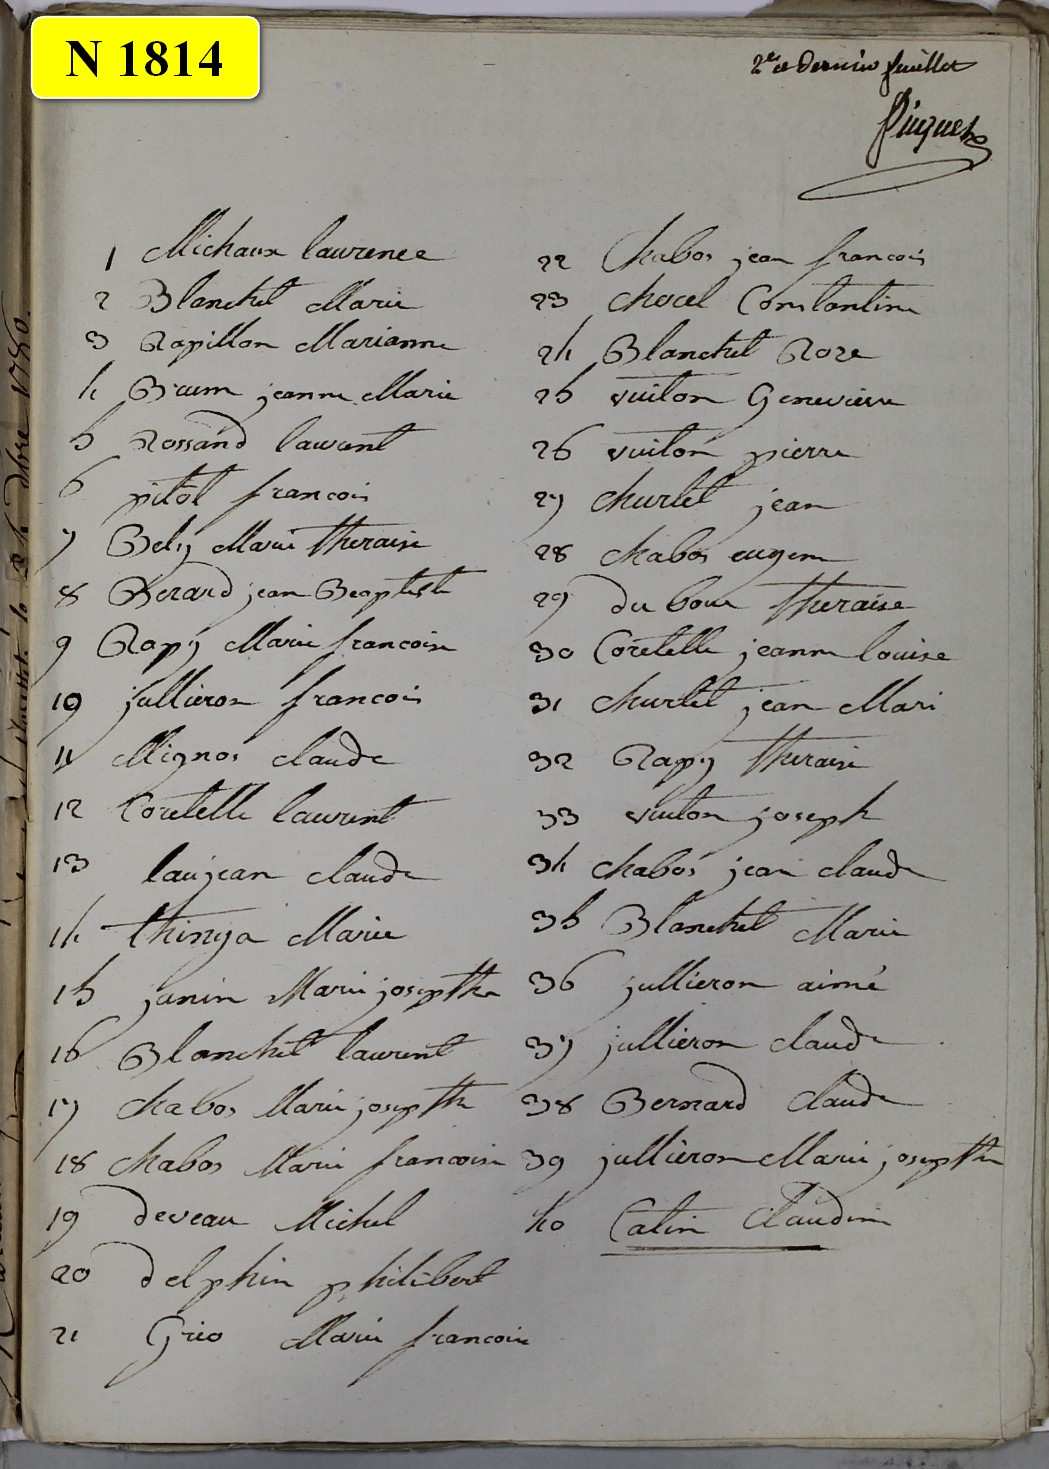 N 1814
2e et dernier feuillet
1 Michaux laurence
2 Blanchet Marie
3 Papillon Marianne
4 jeanne Marie
5 Rossand laurent
6 pitot francois
7 Bely Marie theraise
8 Berard jean Beaptiste
9 Rapy Marie francoise
10 jullieron francois
11 Mignos claude
12 Coretelle laurent
13 laujean claude
14 thinya Marie
15 janin Marie josepthe
16 Blanchet laurent
17 chabos Marie josepthe
18 chabos Marie francoise
19 deveau Michel
20 delphin philibert
21 Grio Marie francoise
22 Chabos jean francois
23 chocel Constantine
24 Blanchet Roze
25 vuiton Genevieve
26 vuiton pierre
27 churlet jean
28 chabos eugene
29 du bour theraise
30 Coretelle jeanne louise
31 churlet jean Mari
32 Rapy theraise
33 vuiton joseph
34 chabos jean claude
35 Blanchet Marie
36 jullieron aimé
37 jullieron claude
38 Bernard Claude
39 jullieron Marie josepthe
40 Catin Claudine